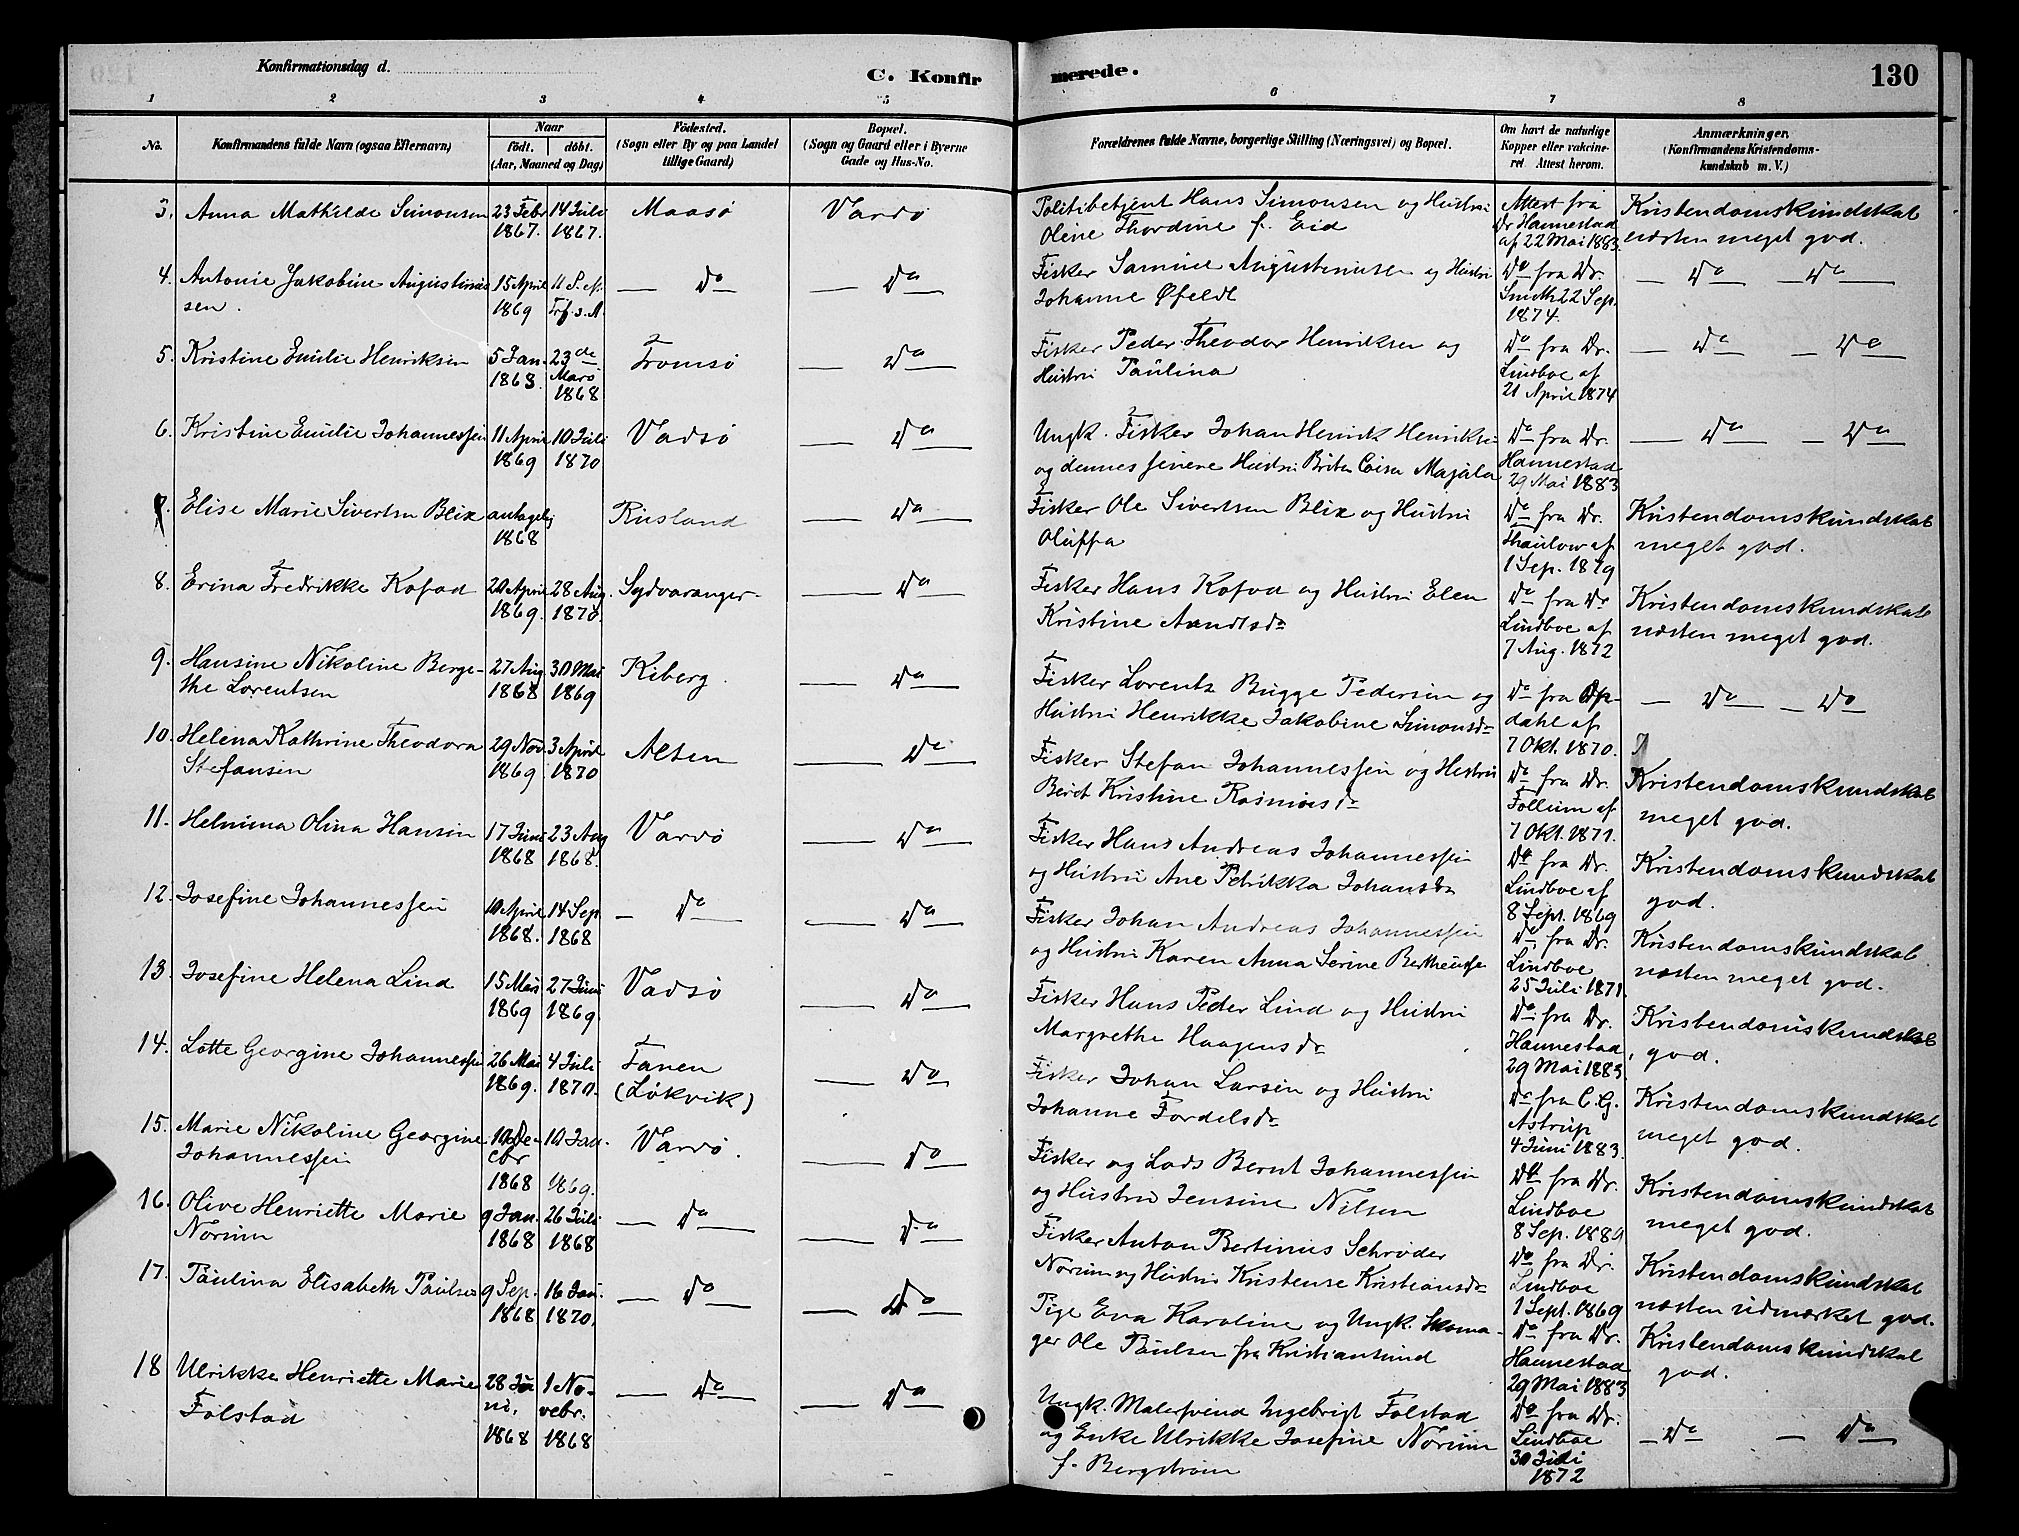 Konfirmationsdag d.
C. Konfirmerede.
130
1 2 3 4 5 6 7 8
No.
Konfirmandens fulde Navn (ogsaa Efternavn)
Naar
født. døbt.
(Aar, Maaned og Dag)
Fødested.
(Sogn eller By og paa Landet
tillige Gaard)
Bopæl.
(Sogn og Gaard eller i Byerne
Gade og Hus-No.
Forældrenes fulde Navne, borgerlige Stilling (Næringsvei) og Bopæl.
Om havt de naturlige
Kopper eller vakcine-
ret Attest herom.
Anmærkninger.
(Konfirmandens Kristendoms-
kundskab m. V.)
3. Anna Mathilde Simonsen 23 Febr 14 Juli Maasø Vardø Politibetjent Hans Simonsen og Hustru Attest fra Kristendomskundskab
1867. 1867. Oline Thordine f. Eid Dr Hannestad næsten meget god.
af 22 Mai 1883.
4. Antonie Jakobine Augustinus 15 April Do Do Fisker Samuel Augustinusen og Hustru Do fra Dr. Do Do
sen. 1869 Johanne Øfeldt Smith 22 Sep.
1874.
5. Kristine Emilie Henriksen 5 Jan. 23de Tromsø Do Fisker Peder Theodor Henriksen og Do fra Dr. Do Do
1868. Mars Hustru Paulina Lindboe af
1868 21 April 1874
6. Kristine Emilie Johannessen 11 April 10 Juli Vadsø Do Ungk. Fisker Johan Henrik Henriksen Do fra Dr. Do Do
1869 1870 og dennes senere Hustru Brita Caisa Majala Hannestad
29 Mai 1883
7. Elise Marie Sivertsen Blix antagelig Rusland Do Fisker Ole Sivertsen Blix og Hustru Do fra Dr. Kristendomskundskab
1868 Oluffa Thaulow af meget god.
1 Sep. 1879
8. Erina Fredrikke Kofod 20 April 28 Aug. Sydvaranger Do Fisker Hans Kofod og Hustru Elen Do fra Dr Kristendomskundskab
1869. 1870. Kristine Arndtsda Lindboe af næsten meget god.
7 Aug. 1872
9. Hansine Nikoline Berge- 27 Aug 30 Mai Kiberg. Do Fisker Lorentz Bugge Pedersen og Do fra Op- Do Do
the Lorentsen 1868 1869 Hustru Henrikke Jakobine Simonsda dahl af
7 Okt. 1870.
10. Helena Kathrine Theodora 29 Nov. 3 April Alten Do Fisker Stefan Johannessen og Hustru Do fra Dr. Kristendomskundskab
Stefansen 1869. 1870 Berit Kristine Rasmusda Follum af meget god.
7 Okt. 1871.
11. Helmina Olina Hansen 17 Juni 23 Aug Vardø Do Fisker Hans Andreas Johannessen Do fra Dr. Kristendomskundskab
1868 1868. og Hustru Ane Petrikka Johansda Lindboe af god.
8 Sept. 1869
12. Josefine Johannessen 10 April 14 Sep. Do Do Fisker Johan Andreas Johannessen Do fra Dr. Kristendomskundskab
1868. 1868 og Hustru Karen Anna Serine Lindboe næsten meget god.
25 Juli 1871.
13. Josefine Helena Lind 15 Mars 27 Juni Vadsø Do Fisker Hans Peder Lind og Hustru Do fra Dr. Kristendomskundskab
1869 1869. Margrethe Haagensda Hannestad god.
29 Mai 1883.
14. Lotte Georgine Johannessen 26 Mai 4 Juli Tanen Do Fisker Johan Larsen og Hustru Do fra C. G. Kristendomskundskab
1869. 1870. (Løkvik) Johanne Fordelsda Astrup meget god.
4 Juni 1883.
15. Marie Nikoline Georgine 10 De- 10 Jan. Vardø. Do Fisker og Lods Bernt Johannessen Do fra Dr. Kristendomskundskab
Johannessen cbr og Hustru Jensine Nilsen Lindboe meget god.
1868 1869. 8 Sep. 1889
16. Olive Henriette Marie 9 Jan. 26 Juli Do Do Fisker Anton Bertinius Schrøder Do fra Dr. Kristendomskundskab
Norum 1868 1868 Norum og Hustru Kristense Kristiansda Lindboe næsten udmærket god.
1 Sept. 1869
17. Paulina Elisabeth Paulsen 9 Sep. 16 Jan. Do Do Pige Eva Karoline og Ungk. Skoma- Do fra Dr. Kristendomskundskab
1868 1870. ger Ole Paulsen fra Kristiansund Hannestad god.
29 Mai 1883
18 Ulrikke Henriette Marie 28 Ju 1 No- Do Do Ungk. Malersvend Ingebrigt Folstad Do fra Dr. Do Do
Folstad ni. vebr. og Enke Ulrikke Josefine Norum Lindboe
1868 1868 f. Bergstrøm 30 Juli
1872